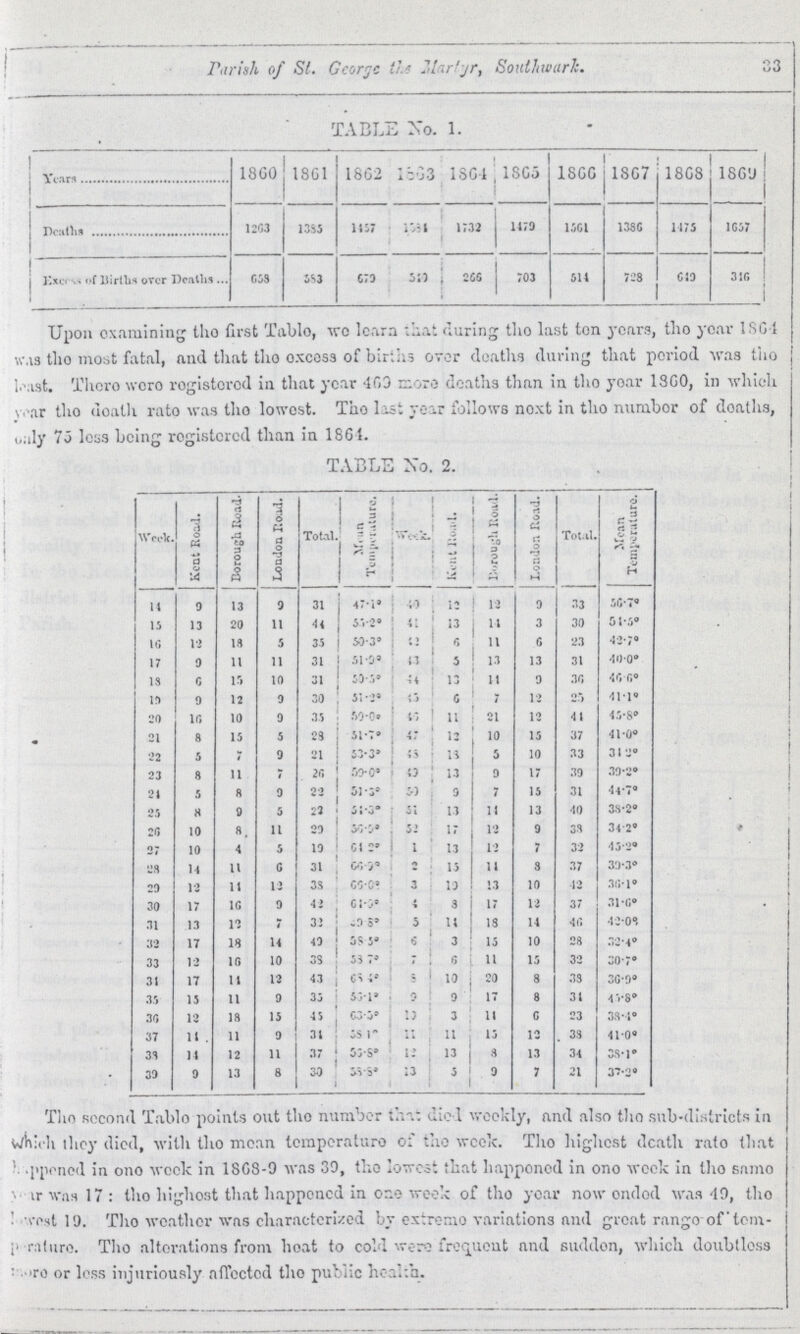 Parish of St. George the Martyr, Southwark. 33
TABLE No. 1.
Years 1860 1861 1862 1863 1864 1865 1866 1867 1868 1869
Deaths 1263 1385 1457 1732 1479 1561 1386 1475 1657
Excess of Births over Deaths ... 658 583 679 549 266 703 514 728 649 316
Upon examining the first Table, we learn that during the last ten years, the year 1864
was the most fatal, and that the excess of births over deaths during that period was the
least. There were registered in that year 469 more deaths than in the year 1860, in which
year the death rate was the lowest. The last year follows next in the number of deaths,
only 75 less being registered than in 1864.
TABLE No. 2.
Week. Kent Road. Borough Road. London Road. Total. Mean Temperature. Week. Kent Road. Borough Road. London Road. Total. Mean Temperature.
14 9 13 9 31 47·1° 40 12 12 9 33 56·7°
15 13 20 11 44 55·2° 41 13 14 3 30 54·5°
16 12 18 5 35 50·3° 42 6 11 6 23 42·7°
17 9 11 11 31 51·9° 43 5 13 13 31 40·0°
18 6 15 10 31 50·5° 44 13 14 9 36 46·6°
19 9 12 9 30 51·2° 45 6 7 12 25 41·1°
20 16 10 9 35 50·0° 46 11 21 12 44 45·8°
21 8 15 5 28 51·7° 47 12 10 15 37 41·0°
22 5 7 9 21 53·3° 48 18 5 10 33 34·2°
23 8 11 7 26 59·0° 49 13 9 17 39 39·2°
24 5 8 9 22 51·3° 50 9 7 15 31 44·7°
25 8 9 5 22 54·3° 51 13 14 13 40 38·2°
26 10 8 11 29 56·9° 52 17 12 9 38 34·2°
27 10 4 5 19 61·2° 1 13 12 7 32 45·2°
28 14 11 6 31 66·9° 2 15 14 8 37 39·3°
29 12 14 12 38 66·0° 3 19 13 10 42 36·1°
30 17 16 9 42 64·9° 4 8 17 12 37 31·6°
31 13 12 7 32 8° 5 14 18 14 46 42·0°
32 17 18 14 49 58·5° 6 3 15 10 28 32·4°
33 12 16 10 38 58·7° 7 6 11 15 32 30·7°
34 17 14 12 43 68·4° 8 10 20 8 38 36·9°
35 15 11 9 35 55·1° 9 9 17 8 34 45·8°
36 12 18 15 45 63·5° 10 3 14 6 23 38·4°
37 14 11 9 34 58·1° 11 11 15 12 38 41·0°
38 14 12 11 37 55·8° 12 13 8 13 34 38·1°
39 9 13 8 30 58·8° 13 5 9 7 21 37·2°
The second Table points out the number that died weekly, and also the sub-districts in
which they died, with the mean temperature of the week. The highest death rate that
happened in one week in 1868-9 was 39, the lowest that happened in one week in the same
year was 17 : the highest that happened in one week of the year now ended was 49, the
lowest 19. The weather was characterized by extreme variations and great range of tem-
perature. The alterations from heat to cold were frequent and sudden, which doubtless
more or less injuriously affected the public health.